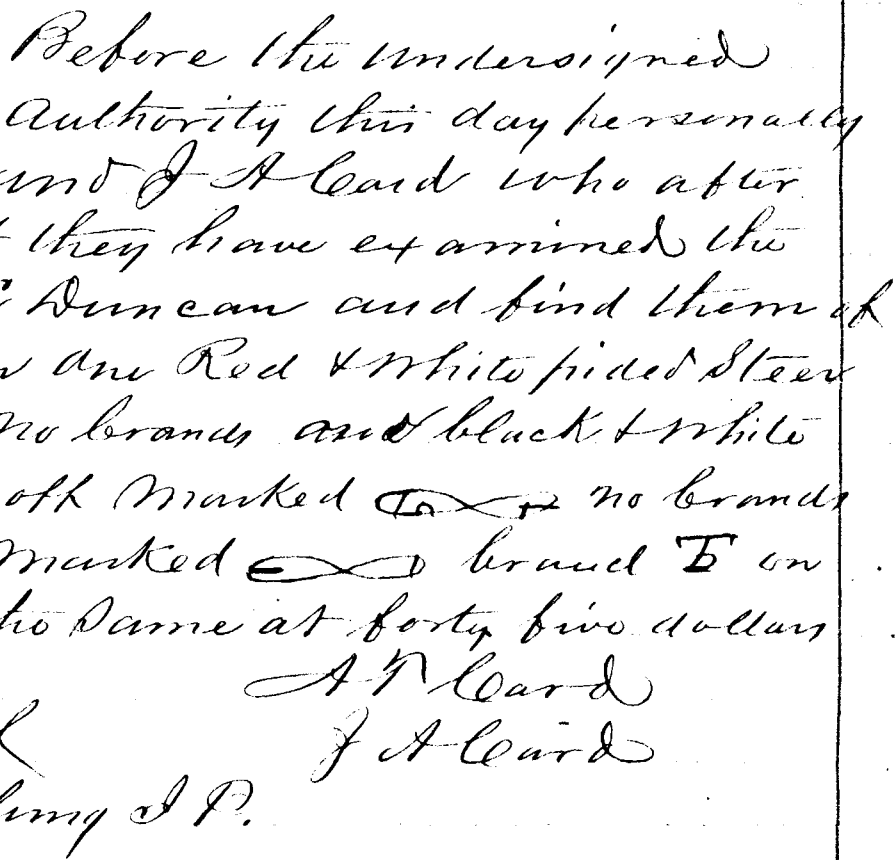 Before the undersigned
Authority this day personally
and J A Card who after
they have examined the
Duncan and find them of
one Red & White pided Steer
no brands and black & White
off Marked no brands
Marked brand on
the Same at forty five dollars
A T Card
J A Card
J P.